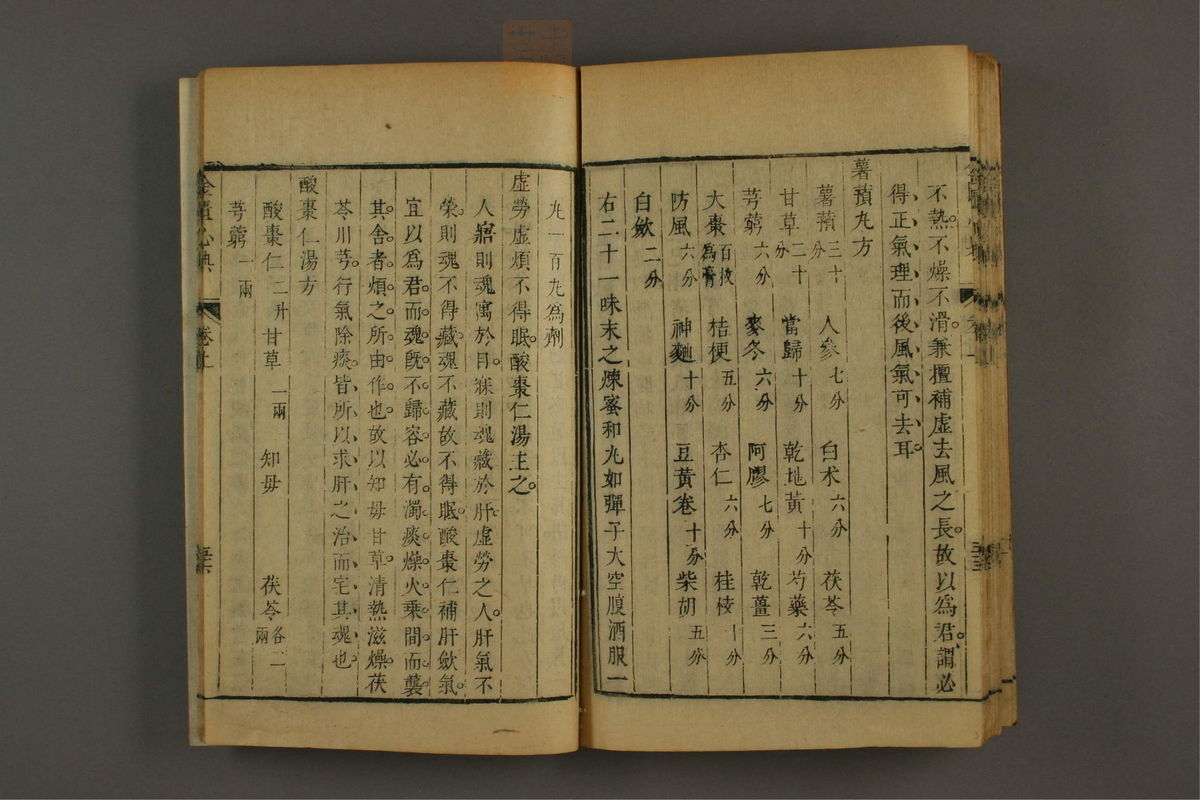 不熱不燥不滑兼擅補虛去風之長故以爲君謂必
得正氣理而後風氣可去耳
薯蕷丸方
薯蕷三十分 人參七分 白朮六分 茯苓五分
甘草二十分 當歸十分 乾地黃十分 芍藥六分
芎藭六分 麥冬六分 阿膠七分 乾薑三分
大棗百枚爲膏 桔梗五分 杏仁六分 桂枝十分
防風六分 神麯十分 豆黃卷十分 柴胡五分
白歛二分
右二十一味末之煉蜜和丸如彈子大空腹酒服一
丸一百丸爲劑
虛勞虛煩不得眠酸棗仁湯主之
人寤則魂寓於目寐則魂藏於肝虛勞之人肝氣不
榮則魂不得藏魂不藏故不得眠酸棗仁補肝歛氣
宜以爲君而魂旣不歸容必有濁痰燥火乘間而襲
其舍者煩之所由作也故以知毋甘草清熱滋燥茯
苓川芎行氣除痰皆所以求肝之治而宅其魂也
酸棗仁湯方
酸棗仁二升 甘草一兩 知毋 茯苓各二兩
芎藭一兩
金匱心典 卷上